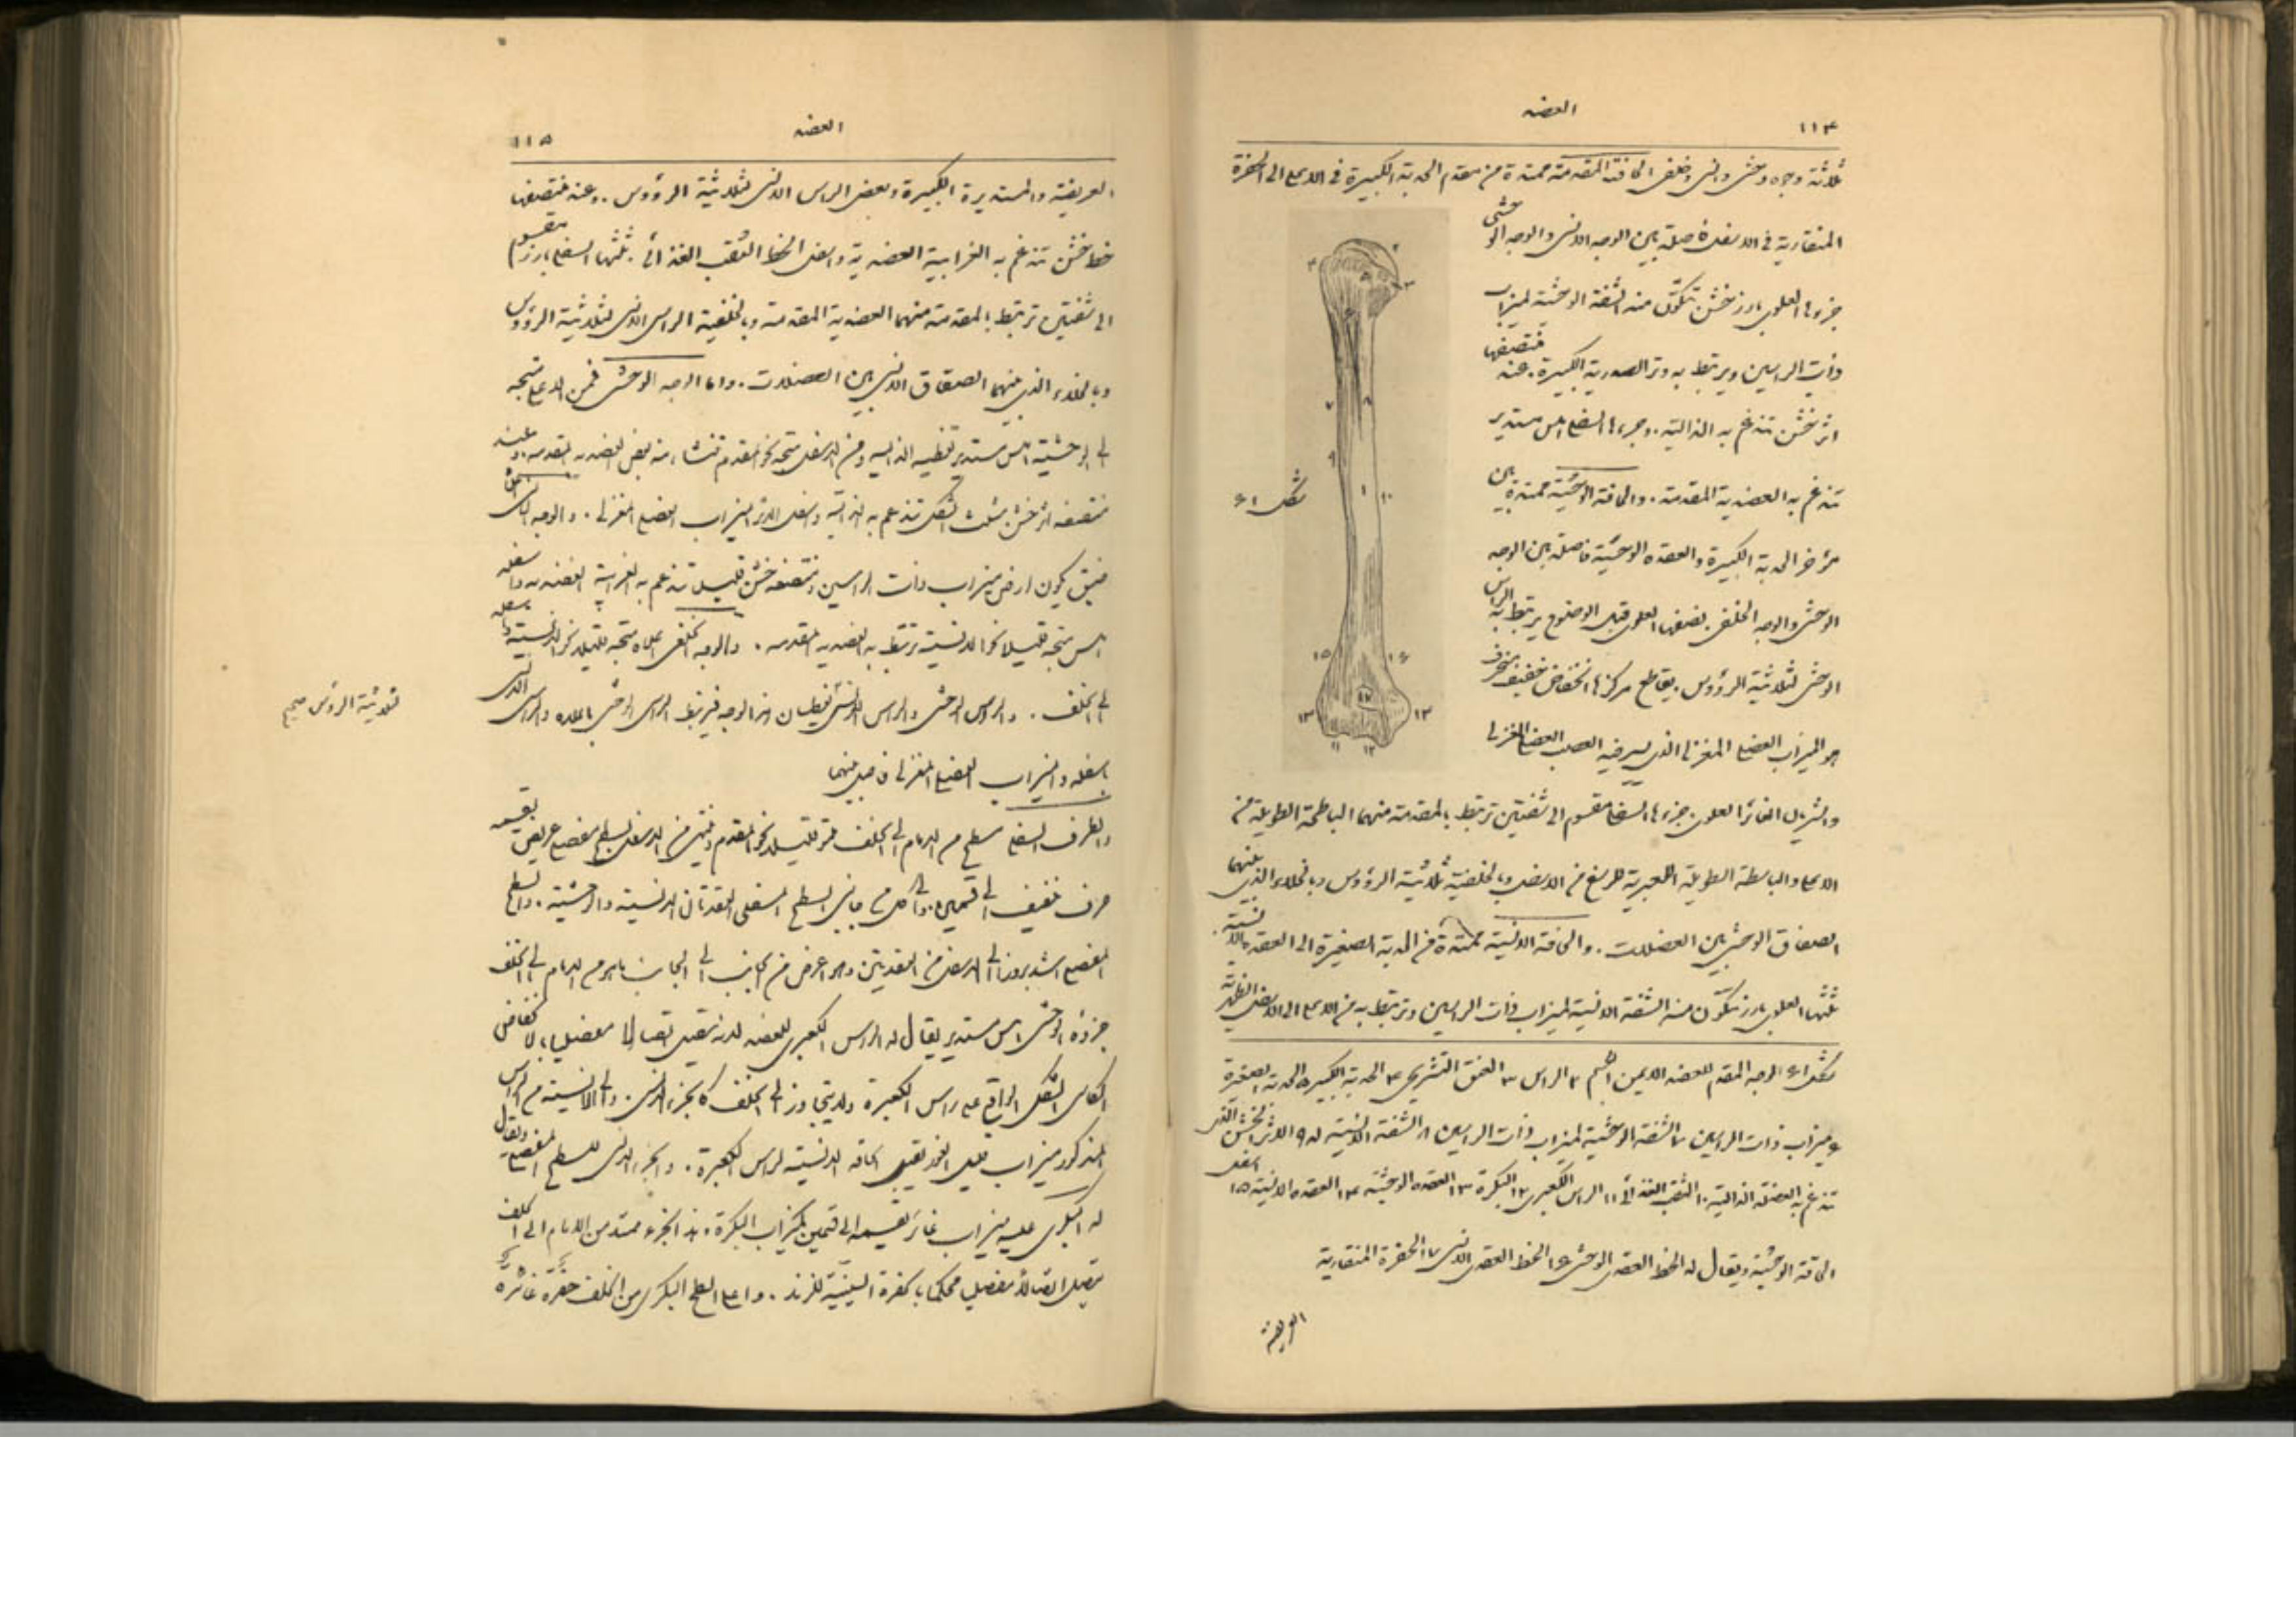 ١١٤
العضد
ثلاثة وجوه وحشي وانسي وخلفي الحافة المقدمة ممتدة من مقدم الحدبة الكبيرة في الاعلى الى الحفرة
المنقارية في الاسفل فاصلة بين الوجه الانسي والوجه الوحشي
جزءها العلوي بارز خشن تتكوّن منه الشفة الوحشية لميزاب
ذات الراسين ويرتبط به وتر الصدرية الكبيرة. عند منتصفها
اثر خشن تندغم به الدالية. وجزءها السفلي املس مستدير
تندغم به العضدية المقدمة. والحافة الوحشية ممتدة بين
مؤخر الحدبة الكبيرة والعقدة الوحشية فاصلة بين الوجه
الوحشي والوجه الخلفي. نصفها العلوي قليل الوضوح يرتبط به الراس
الوحشي لثلاثية الرؤوس. يقاطع مركزها انخفاض خفيف منحرف
هو الميزاب العضلي المغزلي الذي يسير فيه العصب العضلي المغزلي
والشريان الغائر العلوي. جزءها السفلي مقسوم الى شفتين ترتبط بالمقدمة منهما الباطحة الطويلة من
الاعلى والباسطة الطويلة الكعبرية للرسغ من الاسفل وبالخلفية ثلاثية الرؤوس وبالخلاء الذي بينهما
الصفاق الوحشي بين العضلات. والحافة الانسية ممتدة من الحدبة الصغيرة الى العقدة الانسية.
ثلثها العلوي بارز تتكوّن منه الشفة الانسية لميزاب ذات الراسين وترتبط به من الاعلى الى الاسفل الظهرية
شكل ٤١
١
٢
٣
٤
٥
٧
٨
٩
١٠
١١
١٢
١٣
١٥
١٦
١٧
شكل ٤١ الوجه المقدم للعضد الايمن ١ الجسم ٢ الراس ٣ العنق التشريحي ٤ الحدبة الكبيرة ٥ الحدبة الصغيرة
٦ ميزاب ذات الراسين ٧ الشفة الوحشية لميزاب ذات الراسين ٨ الشفة الانسية له ٩ الاثر الخشن الذي
تندغم به العضلة الدالية ١٠ الثقب الغذائي ١١ الراس الكعبري ١٢ البكرة ١٣ العقدة الوحشية ١٤ العقدة الانسية ١٥ اسفل
الحافة الوحشية ويقال له الخط العقدي الوحشي ١٦ الخط العقدي الانسي ١٧ الحفرة المنقارية
العريضة
العضد
١١٥
العريضة والمستديرة الكبيرة وبعض الراس الانسي لثلاثية الرؤوس. وعند منتصفها
خط خشن تندغم به الغرابية العضدية واسفل الخط الثقب الغذائي. ثلثها السفلي بارز مقسوم
الى شفتين ترتبط بالمقدمة منهما العضدية المقدمة وبالخلفية الراس الانسي لثلاثية الرؤوس
وبالخلاء الذي بينهما الصفاق الانسي بين العضلات. واما الوجه الوحشي فمن الاعلى متجه
الى الوحشية املس مستدير تغطيه الدالية ومن الاسفل متجه نحو المقدم تنشا منه بعض العضدية المقدمة. وعند
منتصفه اثر خشن مثلث الشكل تندغم به الدالية واسفل الاثر الميزاب العضلي المغزلي. والوجه الانسي اعلاه
ضيق يكون ارض ميزاب ذات الراسين ومنتصفه خشن قليلا تندغم به الغرابية العضدية واسفله
املس متجه قليلا نحو الانسية ترتبط به العضدية المقدمة. والوجه الخلفي اعلاه متجه قليلا نحو الانسية واسفله
الى الخلف. والراس الوحشي والراس الانسي يغطيان هذا الوجه فيرتبط الراس الوحشي باعلاه والراس الانسي
باسفله والميزاب العضلي المغزلي فاصل بينهما
ثلاثية الرؤس صحيح
والطرف السفلي مسطح من الامام الى الخلف مقوّر قليلا نحو المقدم وينتهي من الاسفل بسطح مفصلي عريض يقسمه
حرف خفيف الى قسمين. والى كل من جانبي السطح المفصلي العقدتان الانسية والوحشية. والسطح
المفصلي اشد بروزا الى الاسفل من العقدتين وهو اعرض من الجانب الى الجانب مما هو من الامام الى الخلف
جزؤه الوحشي املس مستدير يقال له الراس الكعبري للعضد لانه يتصل اتصالا مفصليا بالانخفاض
الكاسي الشكل الواقع على راس الكعبرة ولا يتجاوز الى الخلف كالجزء الانسي. والى الانسية من الراس
المذكور ميزاب قليل الغور يقبل الحافة الانسية لراس الكعبرة. والجزء الانسي للسطح المفصلي ويقال
له البكري عليه ميزاب غائر يقسمه الى قسمين كميزاب البكرة. هذا الجزء ممتد من الامام الى الخلف
يتصل اتصالا مفصليا محكما بالحفرة السينية للزند. واعلى السطح البكري من الخلف حفرة غائرة